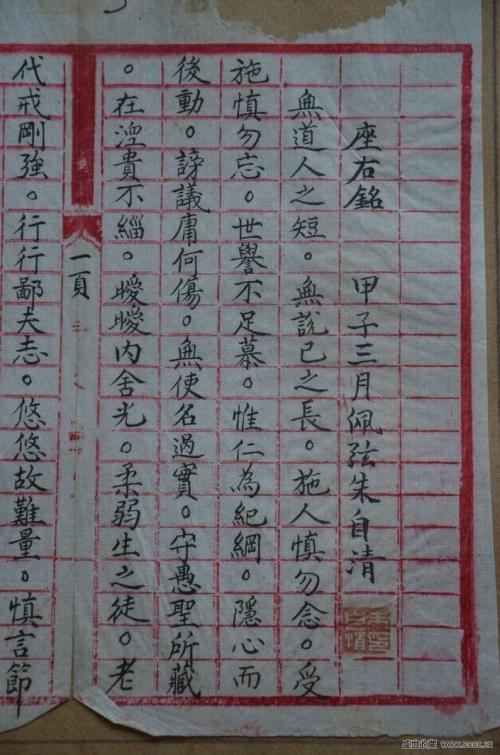 座右銘 甲子三月佩弦朱自清
無道人之短。無說己之長。施人慎勿念。受
施慎勿忘。世譽不足慕。惟仁為紀綱。隱心而
後動。謗議庸何傷。無使名過實。守愚聖所藏
。在涅貴不緇。曖曖內舍光。柔弱生之徒。老
一頁
代戒剛強。行行鄙夫志。悠悠故難量。慎言節
盛世收藏 www.sssc.cn